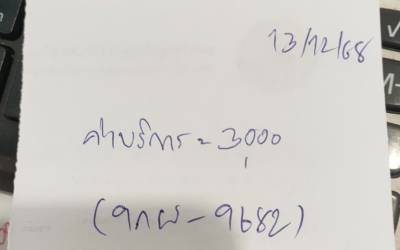 13/12/68
ค่าบริการ = 3,000
(9กผ - 9682)